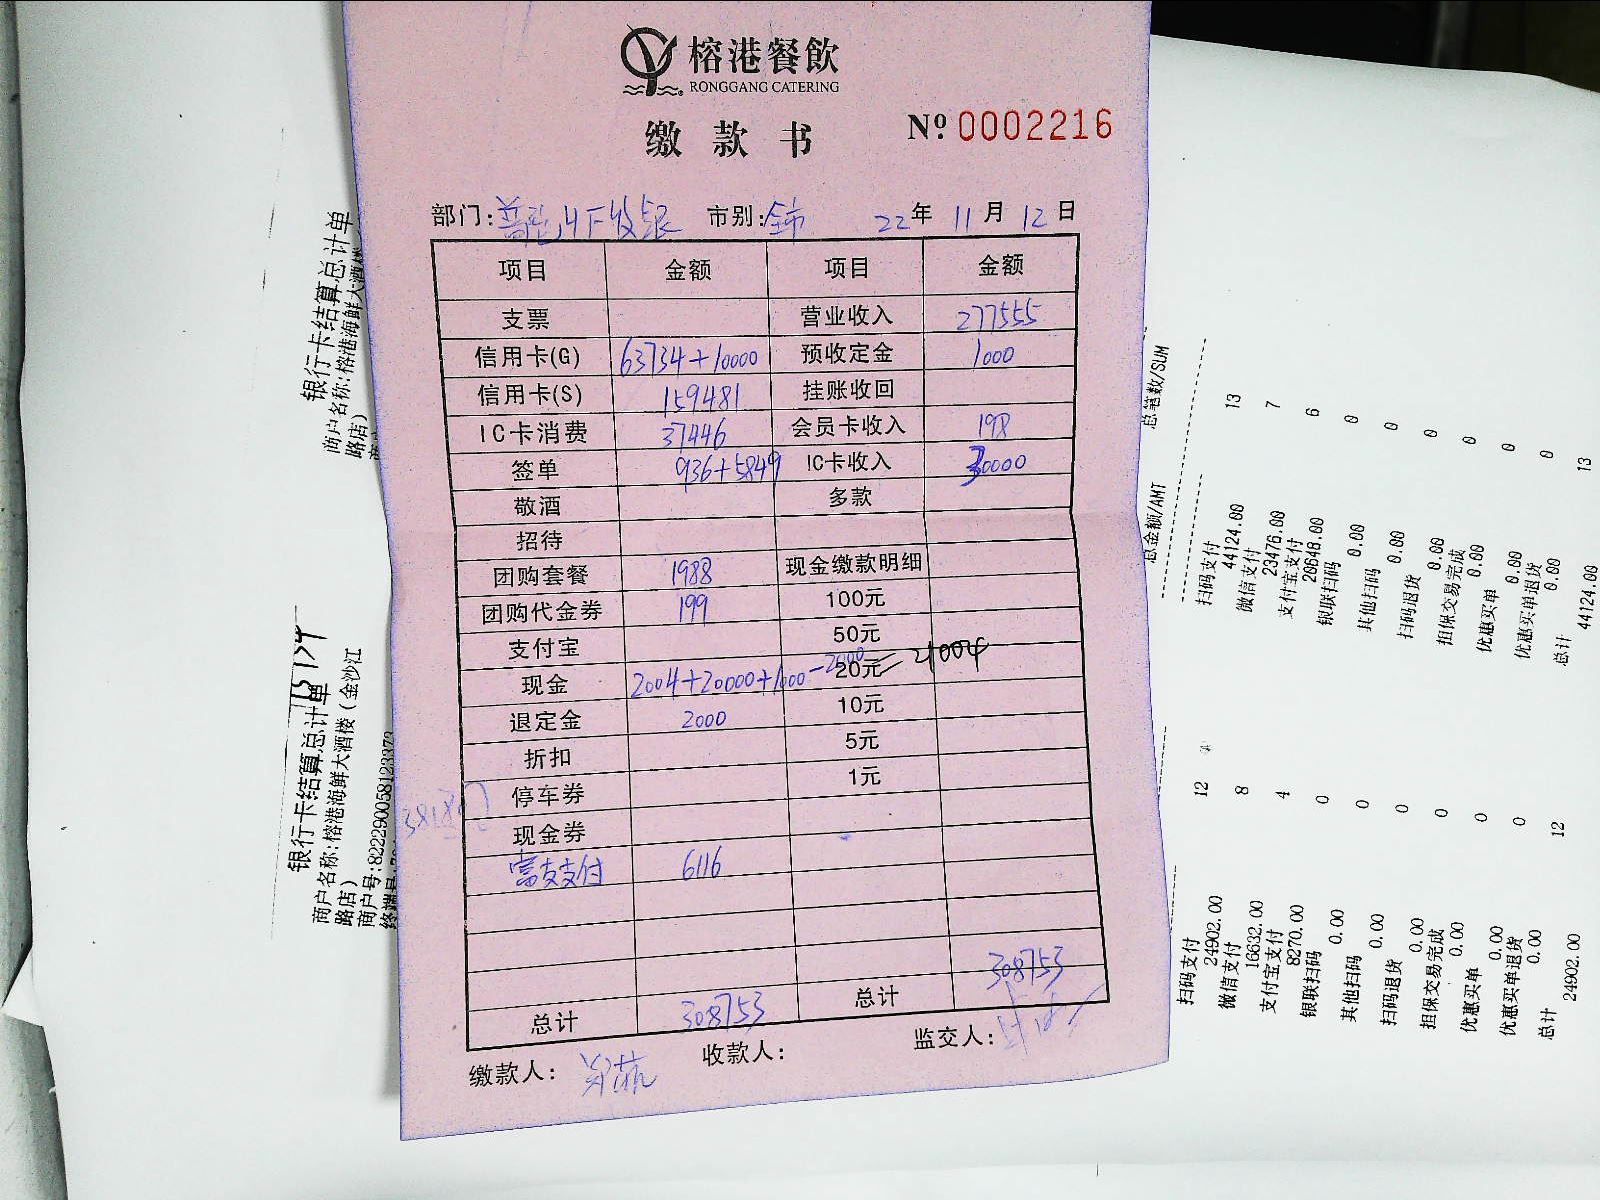 榕港餐飲
RONGGANG CATERING
缴款书
Nº 0002216
部门: 市别:全市 22年 11月 12日
项目 金额 项目 金额
支票 营业收入 277555
信用卡(G) 63734+10000 预收定金 1000
信用卡(S) 159481 挂账收回
IC卡消费 37446 会员卡收入 198
签单 936+5849 IC卡收入 30000
敬酒 多款
招待
团购套餐 1988 现金缴款明细
团购代金券 199 100元
支付宝 50元
现金 2004+20000+1000-2000 20元 =21004
退定金 2000 10元
折扣 5元
停车券 1元
现金券
富友支付 6116
总计 308753 总计 308753
缴款人: 收款人: 监交人:
银行卡结算总计单
商户名称:榕港海鲜大酒楼
路店)
银行卡结算总计单
商户名称:榕港海鲜大酒楼(金沙江
路店)
商户号:82229005812337
总笔数/SUM
总金额/AMT
扫码支付 13
44124.00
微信支付 7
23476.00
支付宝支付 6
20648.00
银联扫码 0
0.00
其他扫码 0
0.00
扫码退货 0
0.00
担保交易完成 0
0.00
优惠买单 0
0.00
优惠买单退货 0
0.00
总计 13
44124.00
扫码支付 12
24902.00
微信支付 8
16632.00
支付宝支付 4
8270.00
银联扫码 0
0.00
其他扫码 0
0.00
扫码退货 0
0.00
担保交易完成 0
0.00
优惠买单 0
0.00
优惠买单退货 0
0.00
总计 12
24902.00